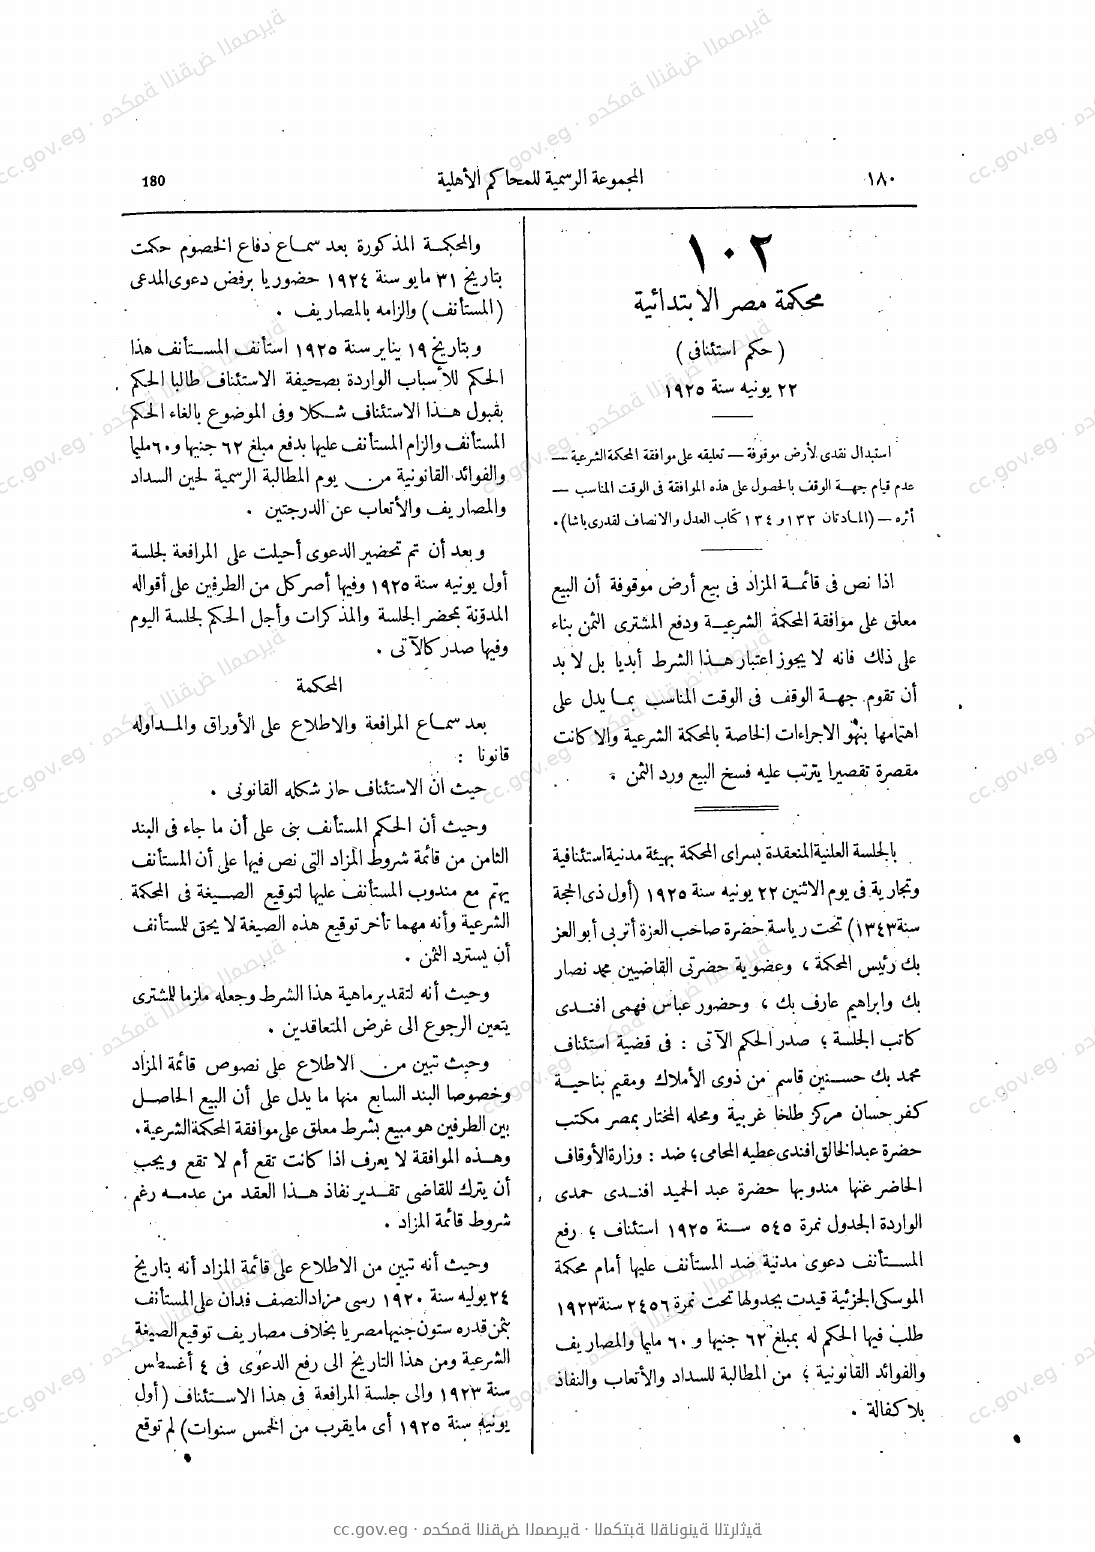 ١٨٠
المجموعة الرسمية للمحاكم الأهلية
180
١٠٢
محكمة مصر الابتدائية
( حكم استئنافى )
٢٢ يونيه سنة ١٩٢٥
استبدال نقدى لأرض موقوفة — تعليقه على موافقة المحكمة الشرعية —
عدم قيام جهة الوقف بالحصول على هذه الموافقة فى الوقت المناسب —
أثره — (المادتان ١٣٣ و ١٣٤ كتاب العدل والانصاف لقدرى باشا).
اذا نص فى قائمة المزاد فى بيع أرض موقوفة أن البيع
معلق على موافقة المحكمة الشرعية ودفع المشترى الثمن بناء
على ذلك فانه لا يجوز اعتبار هذا الشرط أبديا بل لا بد
أن تقوم جهة الوقف فى الوقت المناسب بما يدل على
اهتمامها بنهو الاجراءات الخاصة بالمحكمة الشرعية والا كانت
مقصرة تقصيرا يترتب عليه فسخ البيع ورد الثمن .
بالجلسة العلنية المنعقدة بسراى المحكمة بهيئة مدنية استئنافية
وتجارية فى يوم الاثنين ٢٢ يونيه سنة ١٩٢٥ (أول ذى الحجة
سنة ١٣٤٣) تحت رياسة حضرة صاحب العزة أتربى أبو العز
بك رئيس المحكمة ، وعضوية حضرتى القاضيين محمد نصار
بك وابراهيم عارف بك ، وحضور عباس فهمى افندى
كاتب الجلسة ؛ صدر الحكم الآتى : فى قضية استئناف
محمد بك حسنين قاسم من ذوى الأملاك ومقيم بناحية
كفر حسان مركز طلخا غربية ومحله المختار بمصر مكتب
حضرة عبد الخالق افندى عطيه المحامى ؛ ضد : وزارة الأوقاف
الحاضر عنها مندوبها حضرة عبد الحميد افندى حمدى
الواردة الجدول نمرة ٥٤٥ سنة ١٩٢٥ استئناف ؛ رفع
المستأنف دعوى مدنية ضد المستأنف عليها أمام محكمة
الموسكى الجزئية قيدت بجدولها تحت نمرة ٢٤٥٦ سنة ١٩٢٣
طلب فيها الحكم له بمبلغ ٦٢ جنيها و ٦٠ مليما والمصاريف
والفوائد القانونية ؛ من المطالبة للسداد والأتعاب والنفاذ
بلا كفالة .
والمحكمة المذكورة بعد سماع دفاع الخصوم حكمت
بتاريخ ٣١ مايو سنة ١٩٢٤ حضوريا برفض دعوى المدعى
(المستأنف) والزامه بالمصاريف .
وبتاريخ ١٩ يناير سنة ١٩٢٥ استأنف المستأنف هذا
الحكم للأسباب الواردة بصحيفة الاستئناف طالبا الحكم
بقبول هذا الاستئناف شكلا وفى الموضوع بالغاء الحكم
المستأنف والزام المستأنف عليها بدفع مبلغ ٦٢ جنيها و ٦٠ مليما
والفوائد القانونية من يوم المطالبة الرسمية لحين السداد
والمصاريف والأتعاب عن الدرجتين .
وبعد أن تم تحضير الدعوى أحيلت على المرافعة لجلسة
أول يونيه سنة ١٩٢٥ وفيها أصر كل من الطرفين على أقواله
المدوّنة بمحضر الجلسة والمذكرات وأجل الحكم لجلسة اليوم
وفيها صدر كالآتى .
المحكمة
بعد سماع المرافعة والاطلاع على الأوراق والمداوله
قانونا :
حيث ان الاستئناف حاز شكله القانونى .
وحيث أن الحكم المستأنف بنى على أن ما جاء فى البند
الثامن من قائمة شروط المزاد التى نص فيها على أن المستأنف
يهتم مع مندوب المستأنف عليها لتوقيع الصيغة فى المحكمة
الشرعية وأنه مهما تأخر توقيع هذه الصيغة لا يحق للمستأنف
أن يسترد الثمن .
وحيث أنه لتقدير ماهية هذا الشرط وجعله ملزما للمشترى
يتعين الرجوع الى غرض المتعاقدين .
وحيث تبين من الاطلاع على نصوص قائمة المزاد
وخصوصا البند السابع منها ما يدل على أن البيع الحاصل
بين الطرفين هو مبيع بشرط معلق على موافقة المحكمة الشرعية.
وهذه الموافقة لا يعرف اذا كانت تقع أم لا تقع ويجب
أن يترك للقاضى تقدير نفاذ هذا العقد من عدمه رغم
شروط قائمة المزاد .
وحيث أنه تبين من الاطلاع على قائمة المزاد أنه بتاريخ
٢٤ يوليه سنة ١٩٢٠ رسى مزاد النصف فدان على المستأنف
بثمن قدره ستون جنيها مصريا بخلاف مصاريف توقيع الصيغة
الشرعية ومن هذا التاريخ الى رفع الدعوى فى ٤ أغسطس
سنة ١٩٢٣ والى جلسة المرافعة فى هذا الاستئناف (أول
يونيه سنة ١٩٢٥ أى ما يقرب من الخمس سنوات) لم توقع
cc.gov.eg · محكمة النقض المصرية · المكتبة القانونية التراثية